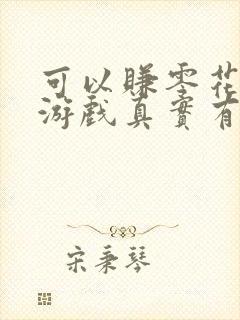 可以赚零花
游戏真实有
宋秉琴